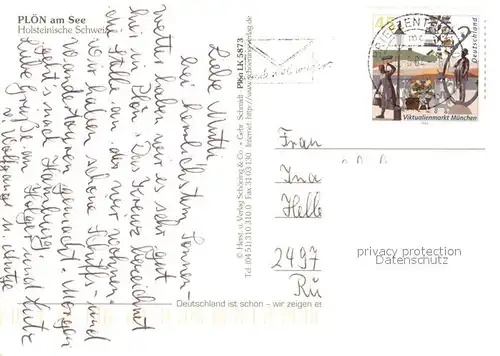 PLÖN am See
Holsteinische Schweiz
Liebe Mutti,
bei herrlichstem Sonnen-
wetter haben wir es sehr gut
hier in Plön. Das Kreuz bezeichnet
die Stelle an der wir wohnen.
Wir haben schöne Schiffs- und
Wanderungen gemacht. Morgen
geht's nach Hamburg.
Liebe Grüße an Helga und
Wolfgang u.
© Herst. u. Verlag Schöning & Co. + Gebr. Schmidt PKolLK 5873
Tel. (04 51) 310 310 Fax 31 03 130 Internet: http://www.schoening-verlag.de
BRIEFZENTRUM
45
Deutschland
Viktualienmarkt München
Frau
Ina
Helle
2497
Rü
privacy protection
Datenschutz
Deutschland ist schön – wir zeigen es